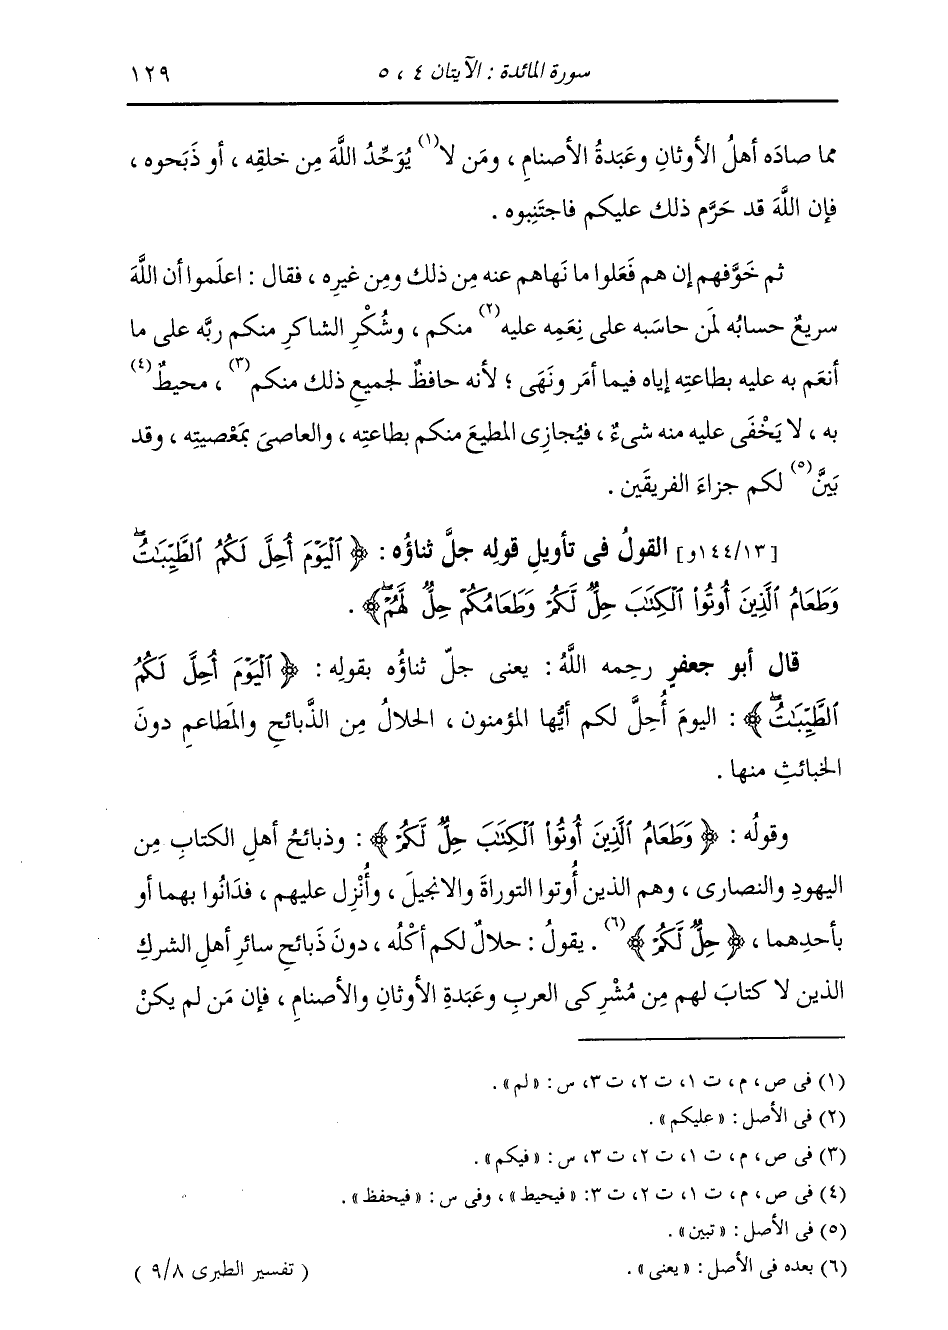 سورة المائدة : الآيتان ٤ ، ٥ ١٢٩
مما صادَه أهلُ الأوثانِ وعَبَدةُ الأصنامِ ، ومَن لا(١) يُوَحِّدُ اللَّهَ مِن خلقِه ، أو ذَبَحوه ،
فإن اللَّهَ قد حَرَّم ذلك عليكم فاجتَنِبوه .
ثم خَوَّفهم إن هم فَعَلوا ما نَهاهم عنه مِن ذلك ومِن غيرِه ، فقال : اعلَموا أن اللَّهَ
سريعٌ حسابُه لمَن حاسَبه على نِعَمِه عليه(٢) منكم ، وشُكْرِ الشاكرِ منكم ربَّه على ما
أنعَم به عليه بطاعتِه إياه فيما أمَر ونَهَى ؛ لأنه حافظٌ لجميعِ ذلك منكم(٣) ، محيطٌ(٤)
به ، لا يَخْفَى عليه منه شىءٌ ، فيُجازِى المطيعَ منكم بطاعتِه ، والعاصىَ بمَعْصيتِه ، وقد
بَيَّنَ(٥) لكم جزاءَ الفريقَين .
[١٤٤/١٣و] القولُ فى تأويلِ قولِه جلَّ ثناؤُه : ﴿ ٱلْيَوْمَ أُحِلَّ لَكُمُ ٱلطَّيِّبَٰتُۖ
وَطَعَامُ ٱلَّذِينَ أُوتُواْ ٱلْكِتَٰبَ حِلٌّ لَّكُمْ وَطَعَامُكُمْ حِلٌّ لَّهُمْۖ ﴾ .
قال أبو جعفرٍ رحِمه اللَّهُ : يعنى جلّ ثناؤُه بقولِه : ﴿ ٱلْيَوْمَ أُحِلَّ لَكُمُ
ٱلطَّيِّبَٰتُۖ ﴾ : اليومَ أُحِلَّ لكم أيُّها المؤمنون ، الحلالُ مِن الذَّبائحِ والمَطاعمِ دونَ
الخبائثِ منها .
وقولُه : ﴿ وَطَعَامُ ٱلَّذِينَ أُوتُواْ ٱلْكِتَٰبَ حِلٌّ لَّكُمْ ﴾ : وذبائحُ أهلِ الكتابِ مِن
اليهودِ والنصارى ، وهم الذين أُوتوا التوراةَ والانجيلَ ، وأُنْزِل عليهم ، فدَانُوا بهما أو
بأحدِهما ، ﴿ حِلٌّ لَّكُمْ ﴾(٦) . يقولُ : حلالٌ لكم أكْلُه ، دونَ ذَبائحِ سائرِ أهلِ الشركِ
الذين لا كتابَ لهم مِن مُشْرِكى العربِ وعَبَدةِ الأوثانِ والأصنامِ ، فإن مَن لم يكنْ
(١) فى ص ، م ، ت ١، ت ٢، ت ٣، س : « لم » .
(٢) فى الأصل : « عليكم » .
(٣) فى ص ، م ، ت ١، ت ٢، ت ٣، س : « فيكم » .
(٤) فى ص ، م ، ت ١، ت ٢، ت ٣: « فيحيط » ، وفى س : « فيحفظ » .
(٥) فى الأصل : « تبين » .
(٦) بعده فى الأصل : « يعنى » .
( تفسير الطبرى ٩/٨ )